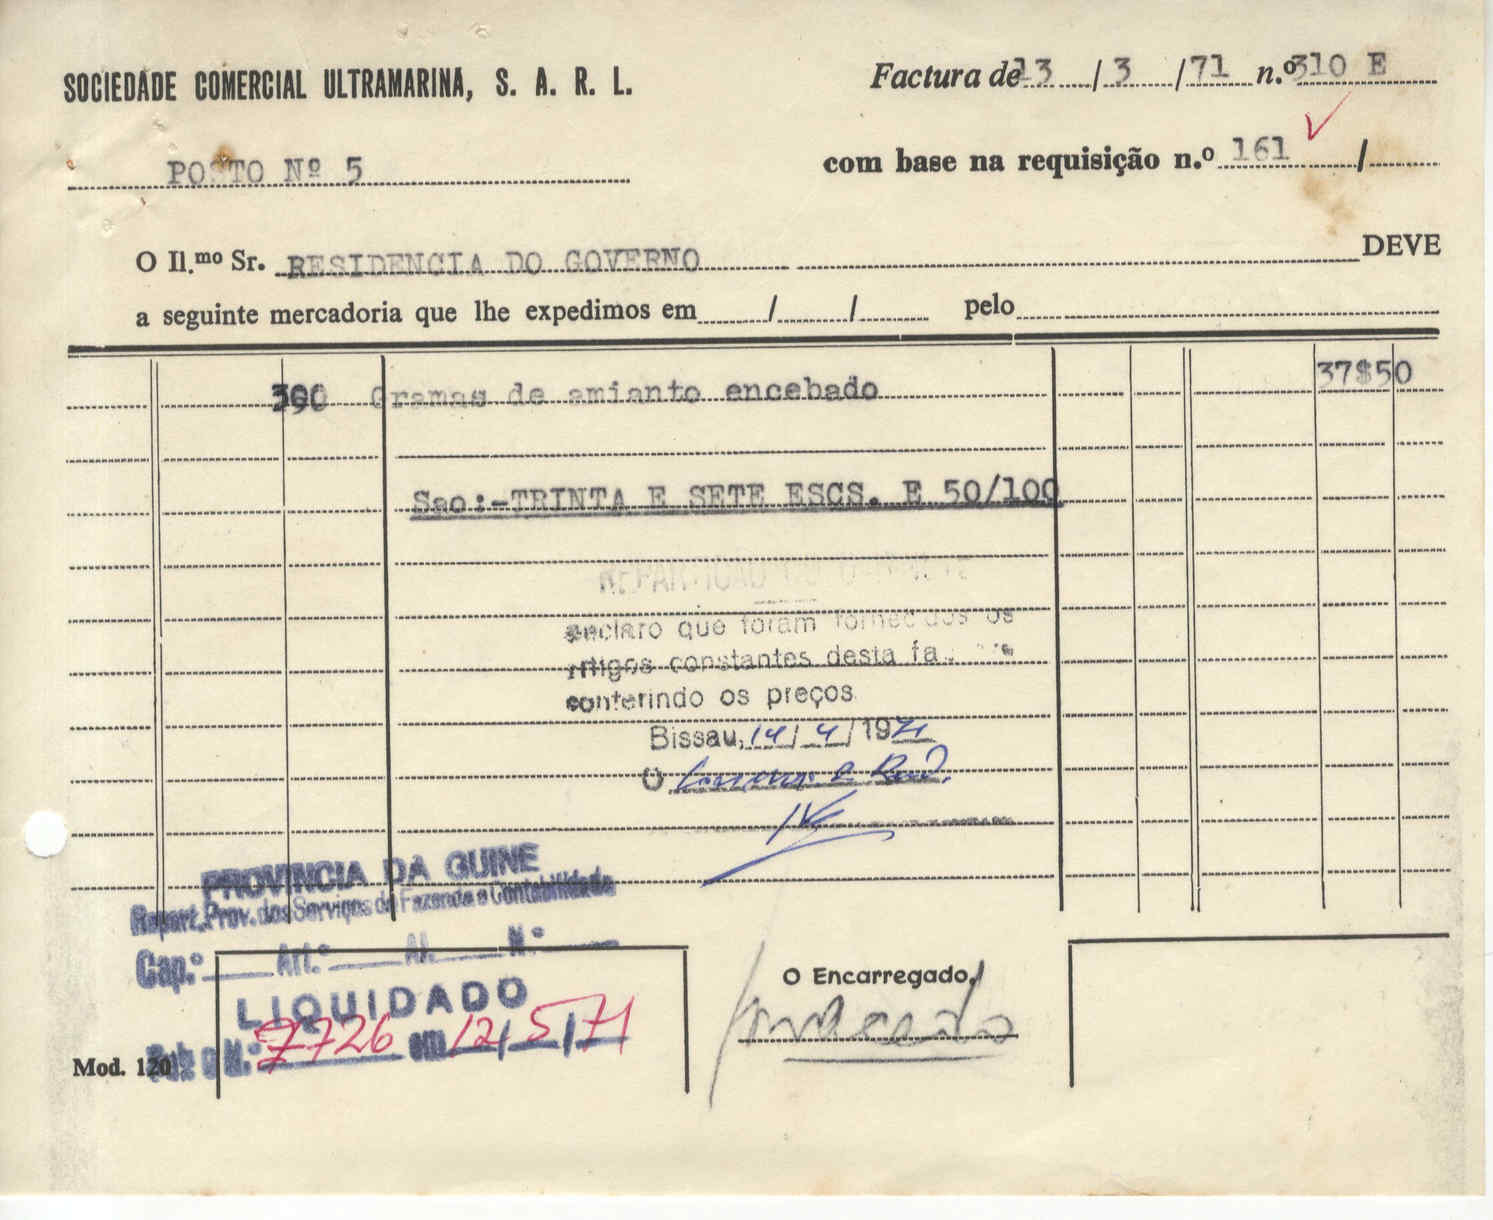 SOCIEDADE COMERCIAL ULTRAMARINA, S. A. R. L.
Factura de 13 / 3 / 71 n.º 310 E
POSTO Nº 5
com base na requisição n.º 161 /
O Il.mo Sr. RESIDENCIA DO GOVERNO DEVE
a seguinte mercadoria que lhe expedimos em / / pelo
300 Gramas de amianto encebado 37$50
Sao:-TRINTA E SETE ESCS. E 50/100
REPARTIÇÃO DO GABINETE
Declaro que foram fornecidos os
artigos constantes desta
conferindo os preços
Bissau, 14 / 4 / 1971
O
PROVINCIA DA GUINE
Repart. Prov. dos Serviços de Fazenda e Contabilidade
Cap.º Art.º Al. N.º
LIQUIDADO
N.º 7726 em 12 / 5 / 71
O Encarregado,
Macedo
Mod. 120